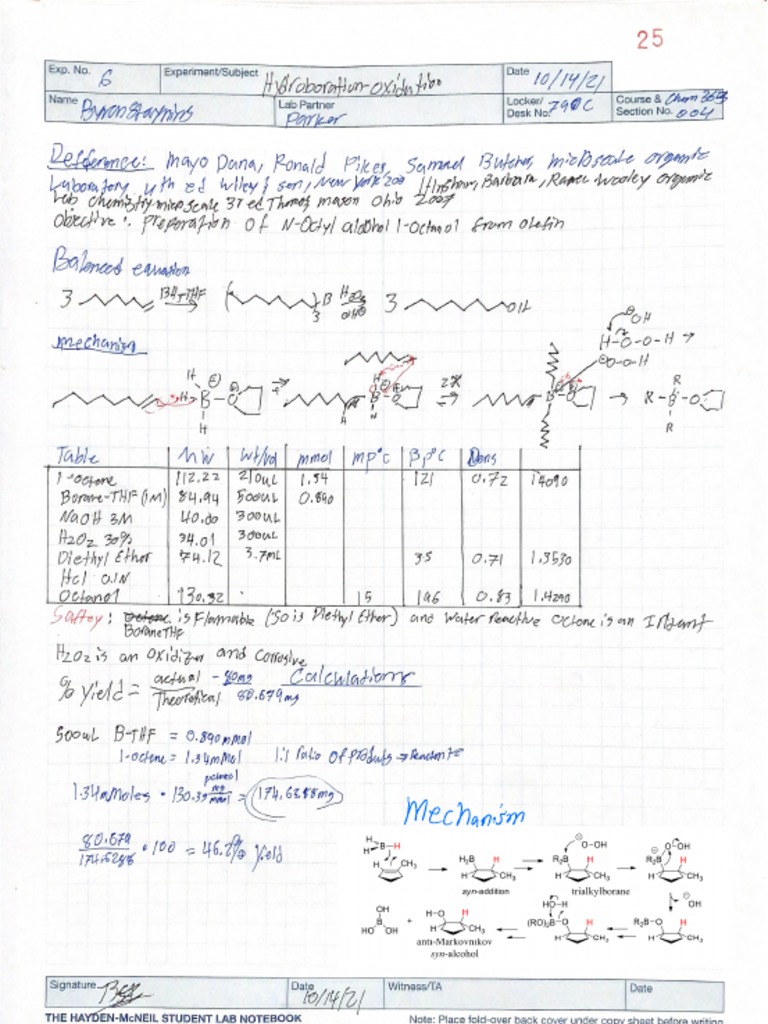 25
Exp. No. 6 Experiment/Subject Hydroboration-oxidation Date 10/14/21
Name Lab Partner Parker Locker/Desk No. 790C Course & Section No. Chem 004
Refference: Mayo Dana, Ronald Pikes, Samuel Butcher, microscale organic
Laboratory, 4th ed wiley & son, New York 200 Hinshaw, Barbara, wooley organic
Lab chemistry microscale 3rd ed Thomas mason ohio 2007
objective: Preparation of N-Octyl alcohol 1-octanol from olefin
Balanced equation
3 BH3-THF B 3 H2O2 OH⊖ 3 OH
mechanism
⊖OH
H-O-O-H →
⊖O-O-H
H H B O H 2x R-B-O R R
Table MW wt/vol mmol mp°C Bp°C Dens
1-octene 112.22 210uL 1.34 121 0.72 1.4090
Borane-THF (1M) 84.94 500uL 0.890
NaOH 3M 40.00 300uL
H2O2 30% 34.01 300uL
Diethyl Ether 74.12 3.7mL 35 0.71 1.3530
Hcl 0.1N
Octanol 130.32 15 196 0.83 1.4290
Saftey: is Flammable (So is Diethyl Ether) and water Reactive octene is an Irritant
Borane THF
H2O2 is an oxidizer and corrosive
% yield = actual - 80mg Calculations
Theoretical 80.679mg
500uL B-THF = 0.890mmol
1-octene = 1.34mmol 1:1 ratio of products → Reactants
1.34mmoles • 130.33 mg/mmol = 174.6288mg
80.679
174.6288 • 100 = 46.2% Yield
Mechanism
H H B-H H CH3
H2B H H CH3
syn-addition
R2B H H CH3 ⊖O-OH
trialkylborane
R2B O-OH H H CH3
⊖OH
OH B HO OH + H-O H H CH3
anti-Markovnikov
syn-alcohol
HO-H
(RO)2B-O H H CH3
R2B-O H H CH3
Signature Date 10/14/21 Witness/TA Date
THE HAYDEN-McNEIL STUDENT LAB NOTEBOOK Note: Place fold-over back cover under copy sheet before writing